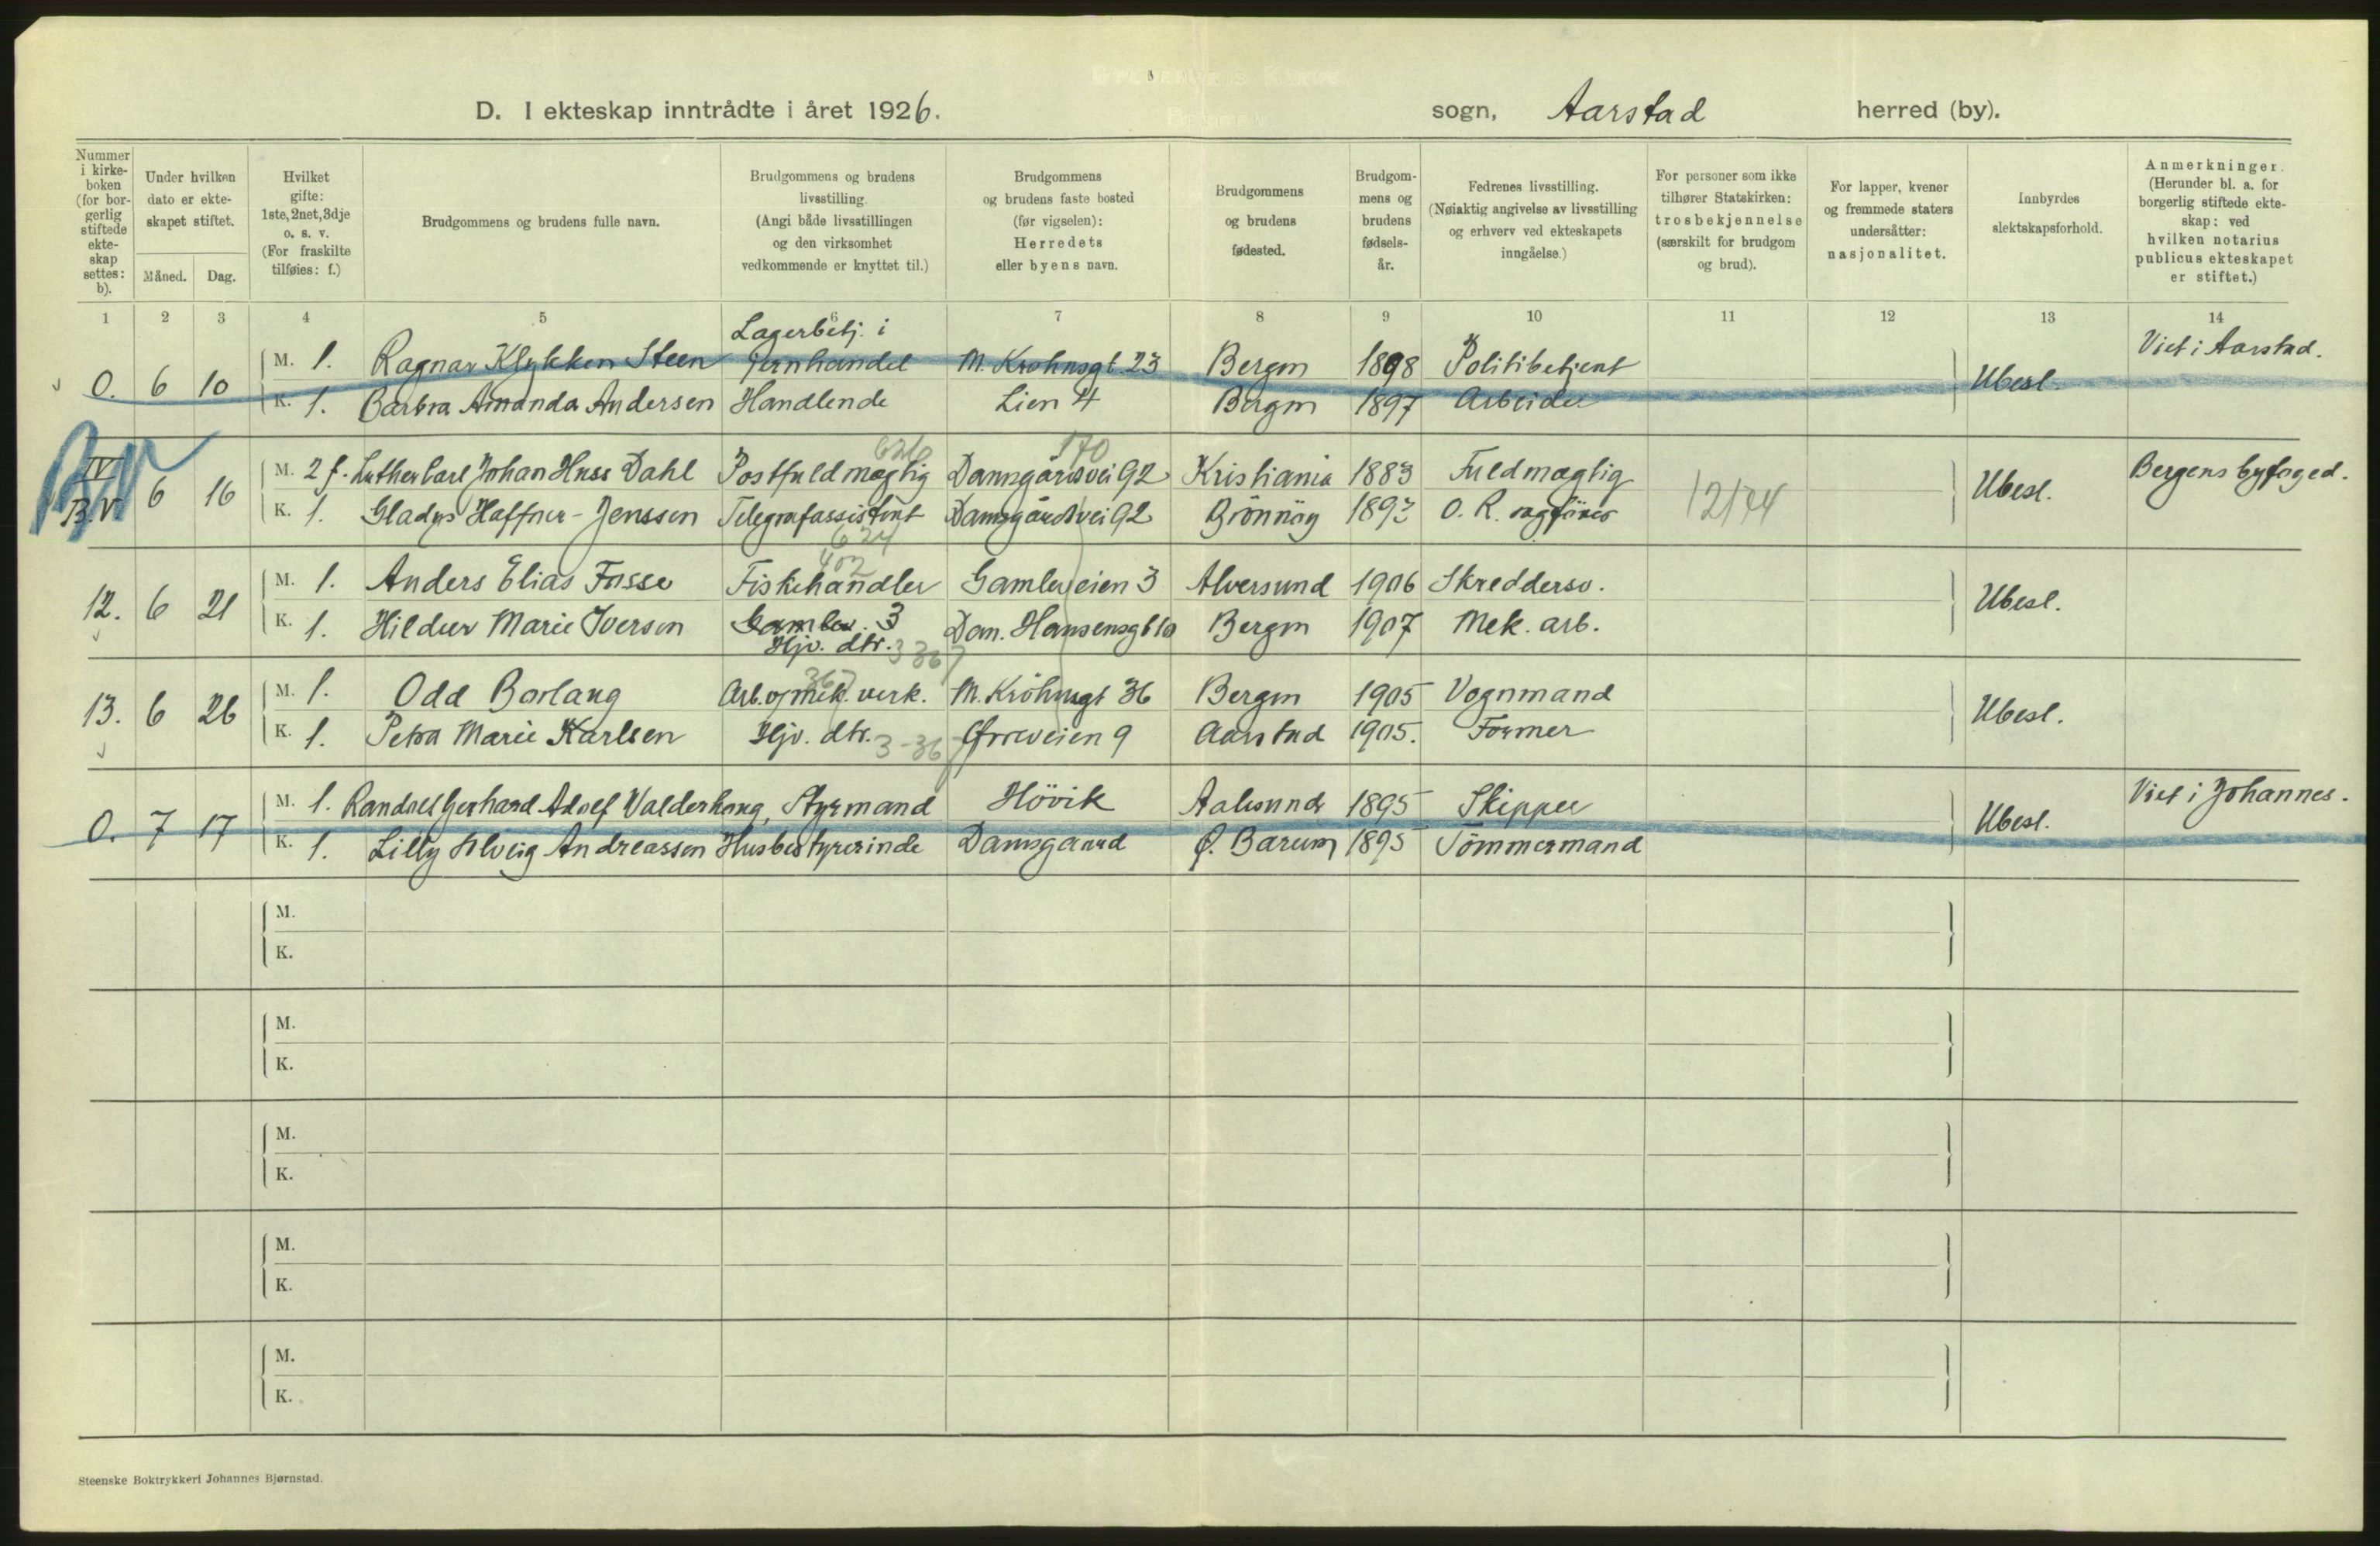 D. I ekteskap inntrådte i året 1926. sogn, Aarstad herred (by).
Nummer i kirke-boken (for bor-gerlig stiftede ekte-skap settes: b).
Under hvilken dato er ekte-skapet stiftet.
Måned. Dag.
Hvilket gifte: 1ste, 2net, 3dje o. s. v. (For fraskilte tilføies: f.)
Brudgommens og brudens fulle navn.
Brudgommens og brudens livsstilling. (Angi både livsstillingen og den virksomhet vedkommende er knyttet til.)
Brudgommens og brudens faste bosted (før vigselen): Herredets eller byens navn.
Brudgommens og brudens fødested.
Brudgom-mens og brudens fødsels-år.
Fedrenes livsstilling. (Nøiaktig angivelse av livsstilling og erhverv ved ekteskapets inngåelse.)
For personer som ikke tilhører Statskirken: trosbekjennelse (særskilt for brudgom og brud).
For lapper, kvener og fremmede staters undersåtter: nasjonalitet.
Innbyrdes slektskapsforhold.
Anmerkninger. (Herunder bl. a. for borgerlig stiftede ekte-skap: ved hvilken notarius publicus ekteskapet er stiftet.)
1 2 3 4 5 6 7 8 9 10 11 12 13 14
Lagerbetj. i
0. 6 10 M. 1. Ragnar Klykken Steen Jernhandel M. Krohnsgt. 23 Bergen 1898 Politibetjent Ubesl. Viet i Aarstad.
K. 1. Barbra Amanda Andersen Handlende Lien 4 Bergen 1897 Arbeider
626 170
IV B.V. 6 16 M. 2 f. Luther Carl Johan Huss Dahl Postfuldmægtig Damsgårdsvei 92 Kristiania 1883 Fuldmægtig 12174 Ubesl. Bergens byfoged.
K. 1. Gladys Haffner-Jenssen Telegrafassistent Damsgårdsvei 92 Brönnöy 1893 O. R. sagförer
624
402
12. 6 21 M. 1. Anders Elias Fosse Fiskehandler Gamleveien 3 Alversund 1906 Skreddersv. Ubesl.
K. 1. Hildur Marie Iversen Gamlev. 3 Dan. Hansensgt 10 Bergen 1907 Mek. arb.
Hjv. dtr. 3 367
367
13. 6 26 M. 1. Odd Borlaug Arb. v/ mek. verk. M. Kröhnsgt 36 Bergen 1905 Vognmand Ubesl.
K. 1. Petra Marie Karlsen Hjv. dtr. 3-367 9 Aarstad 1905. Former
0. 7 17 M. 1. Randolf Gerhard Adolf Valderhaug, Styrmand Hövik Aalesund 1895 Skipper Ubesl. Viet i Johannes.
K. 1. Lilly Solveig Andreassen Husbestyrerinde Damsgaard Ø. Bærum 1895 Tömmermand
M.
K.
M.
K.
M.
K.
M.
K.
M.
K.
Steenske Boktrykkeri Johannes Bjørnstad.